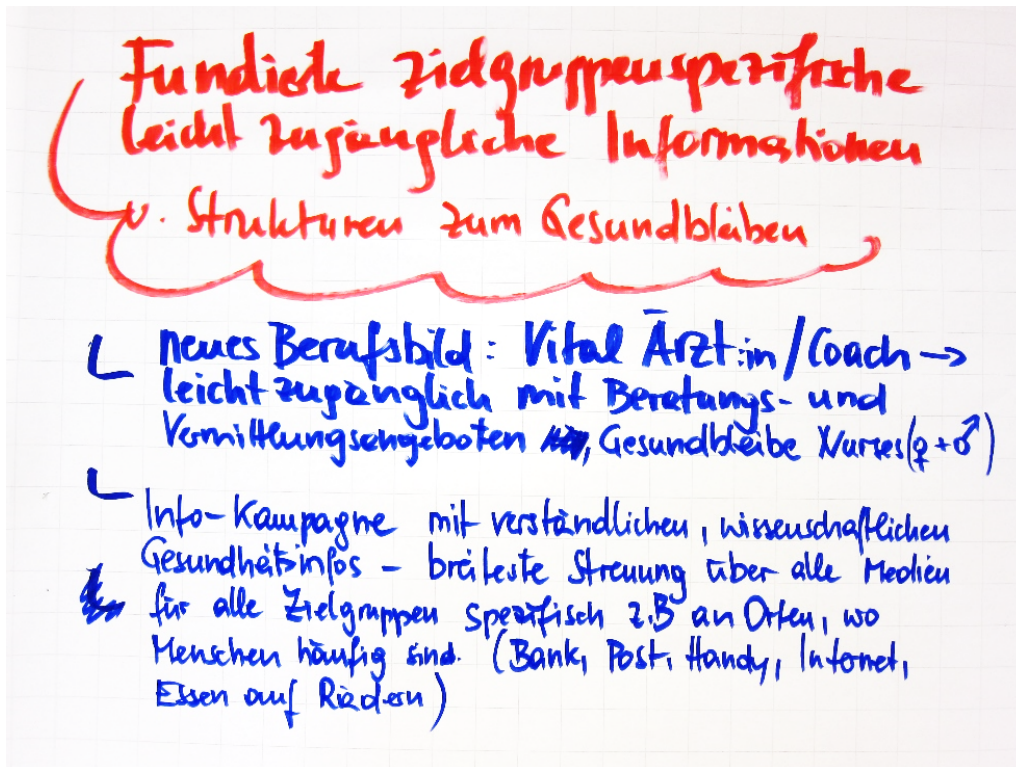 Fundierte zielgruppenspezifische
leicht zugängliche Informationen
u. Strukturen zum Gesundbleiben
neues Berufsbild: Vital Ärzt:in/Coach →
leicht zugänglich mit Beratungs- und
Vermittlungsangeboten, Gesundbleibe Nurses (♀+♂)
Info-Kampagne mit verständlichen, wissenschaftlichen
Gesundheitsinfos - breiteste Streuung über alle Medien
für alle Zielgruppen spezifisch z.B an Orten, wo
Menschen häufig sind. (Bank, Post, Handy, Internet,
Essen auf Rädern)